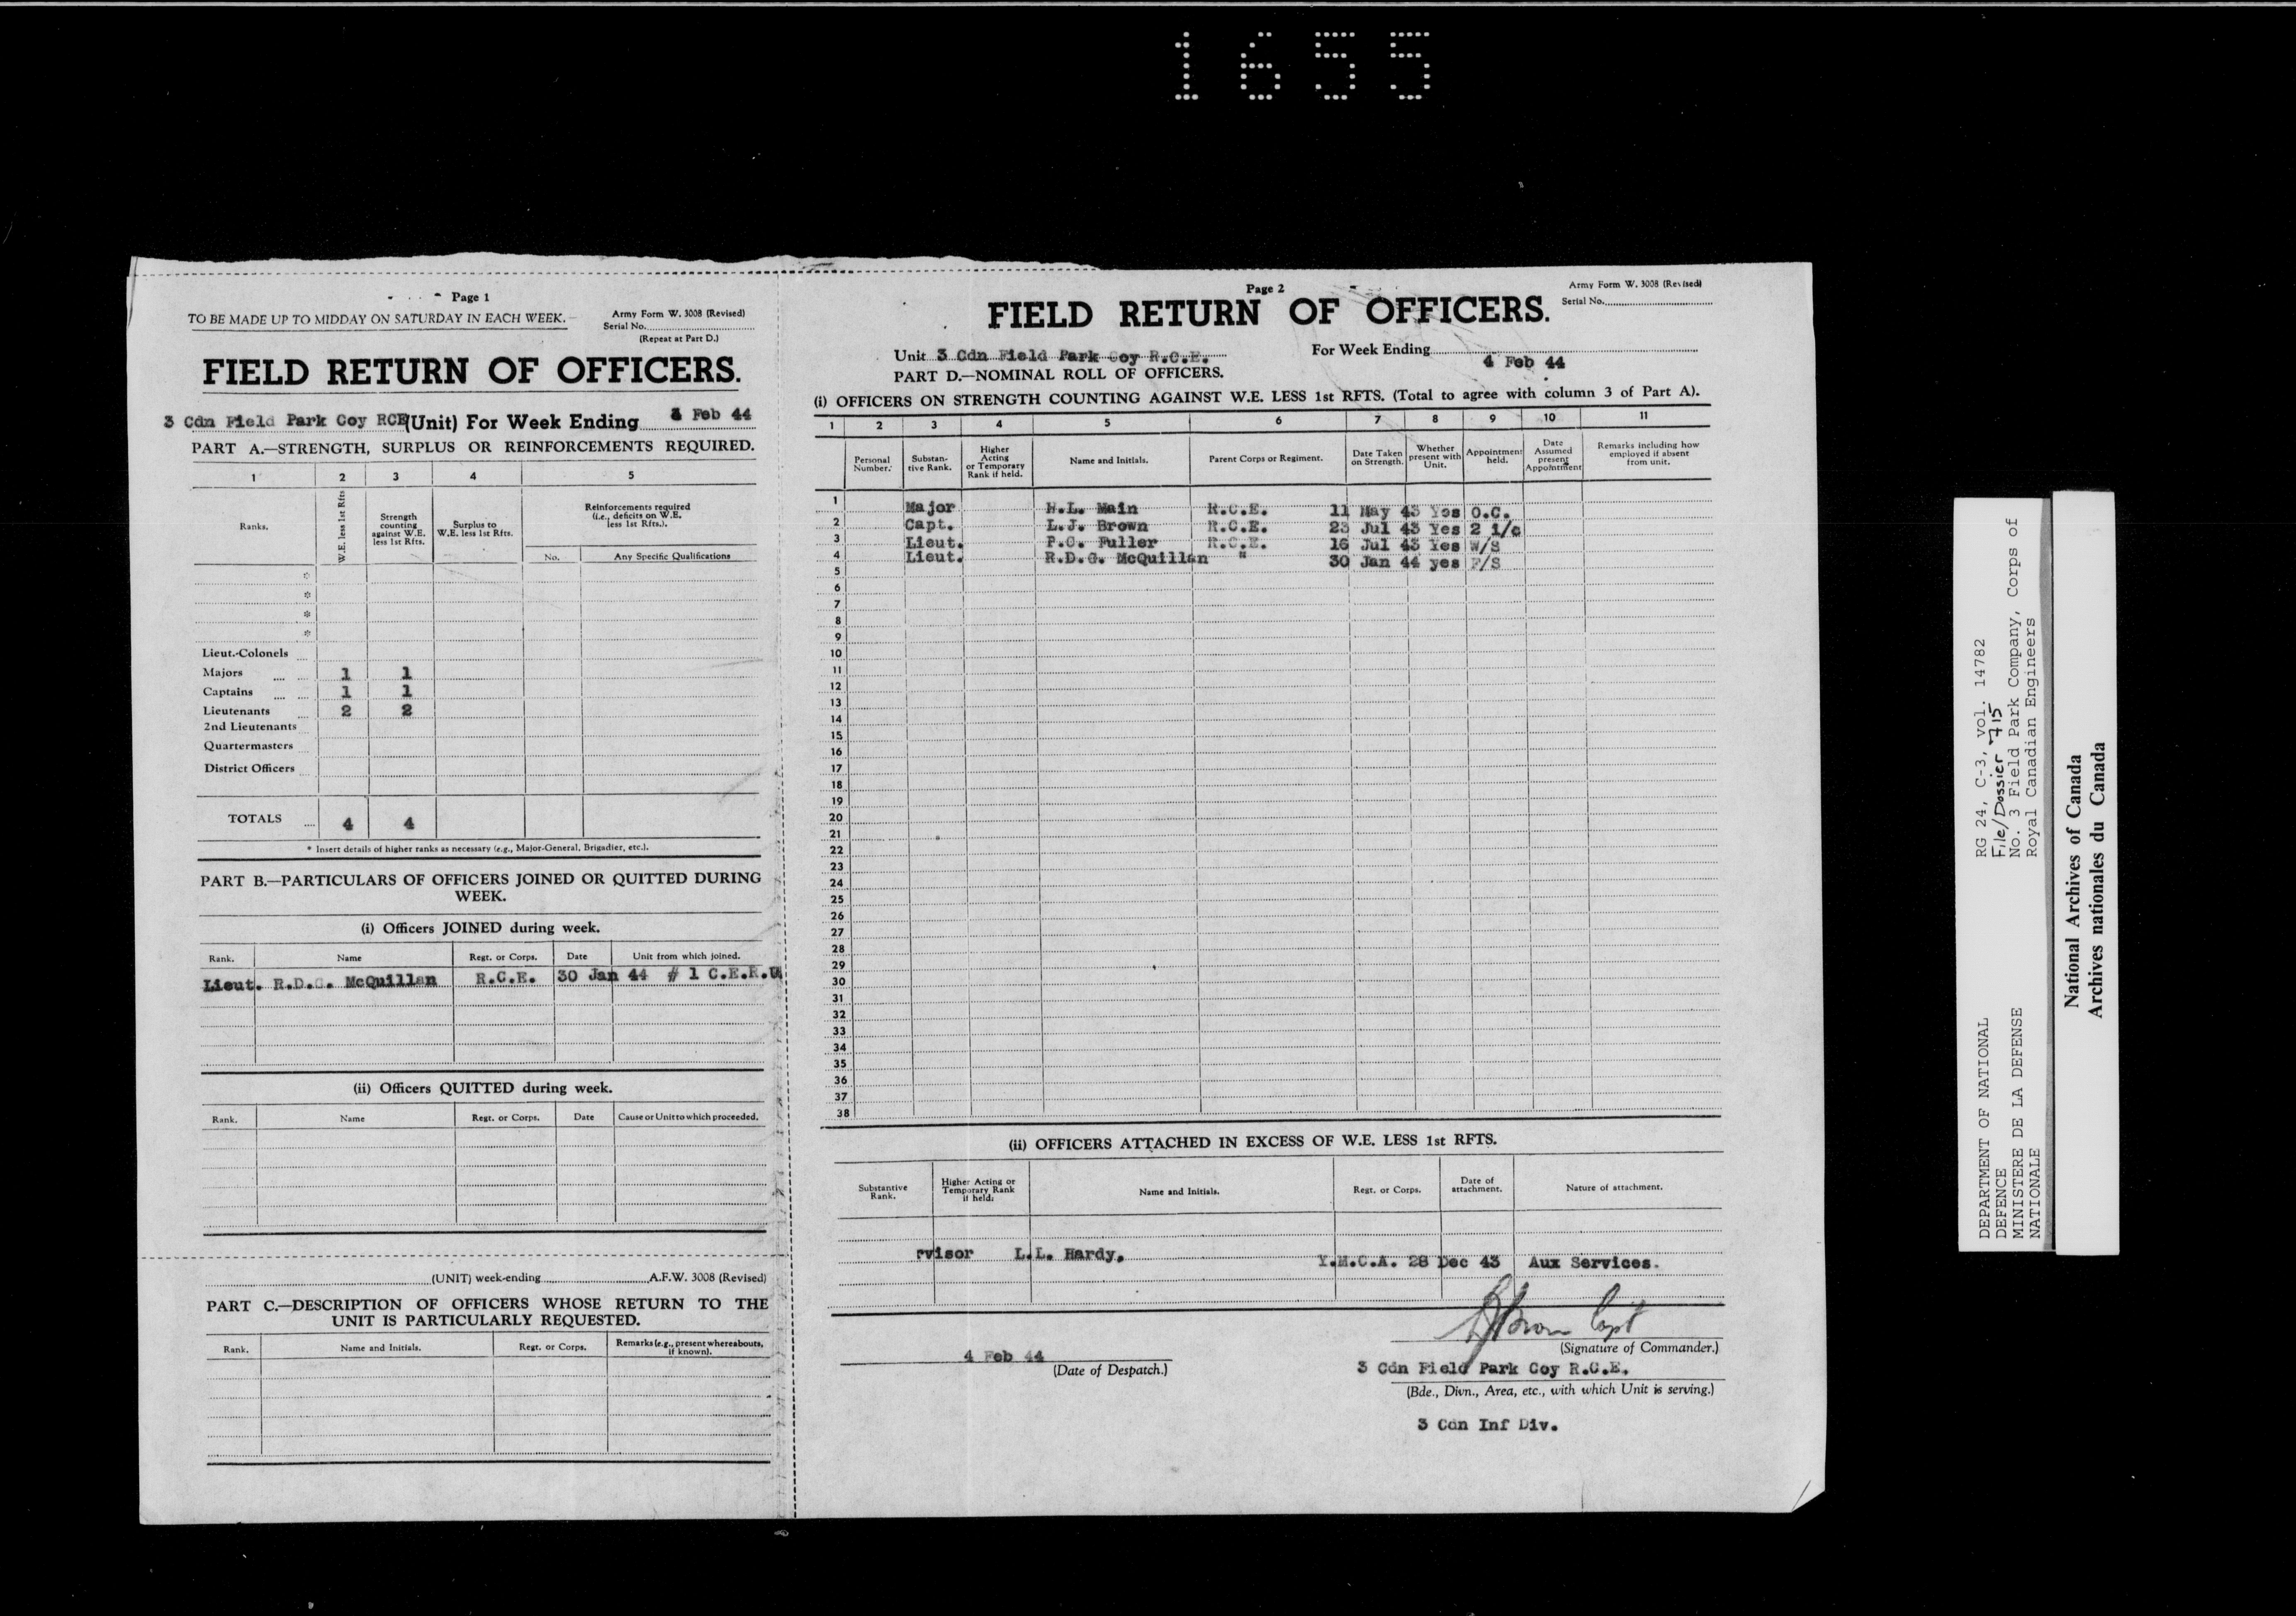 1655
Page 1
TO BE MADE UP TO MIDDAY ON SATURDAY IN EACH WEEK.
Army Form W. 3008 (Revised)
Serial No.
(Repeat at Part D.)
FIELD RETURN OF OFFICERS.
3 Cdn Field Park Coy RCE (Unit) For Week Ending 4 Feb 44
PART A.—STRENGTH, SURPLUS OR REINFORCEMENTS REQUIRED.
1 2 3 4 5
Ranks. W.E. less 1st Rfts Strength counting against W.E. less 1st Rfts. Surplus to W.E. less 1st Rfts. Reinforcements required (i.e., deficits on W.E. less 1st Rfts.).
No. Any Specific Qualifications
*
*
*
*
Lieut.-Colonels
Majors 1 1
Captains 1 1
Lieutenants 2 2
2nd Lieutenants
Quartermasters
District Officers
TOTALS 4 4
* Insert details of higher ranks as necessary (e.g., Major-General, Brigadier, etc.).
PART B.—PARTICULARS OF OFFICERS JOINED OR QUITTED DURING
WEEK.
(i) Officers JOINED during week.
Rank. Name Regt. or Corps. Date Unit from which joined.
Lieut. R.D.G. McQuillan R.C.E. 30 Jan 44 # 1 C.E.R.U
(ii) Officers QUITTED during week.
Rank. Name Regt. or Corps. Date Cause or Unit to which proceeded.
(UNIT) week-ending A.F.W. 3008 (Revised)
PART C.—DESCRIPTION OF OFFICERS WHOSE RETURN TO THE
UNIT IS PARTICULARLY REQUESTED.
Rank. Name and Initials. Regt. or Corps. Remarks (e.g., present whereabouts, if known).
Page 2
Army Form W. 3008 (Revised)
Serial No.
FIELD RETURN OF OFFICERS.
Unit 3 Cdn Field Park Coy R.C.E. For Week Ending 4 Feb 44
PART D.—NOMINAL ROLL OF OFFICERS.
(i) OFFICERS ON STRENGTH COUNTING AGAINST W.E. LESS 1st RFTS. (Total to agree with column 3 of Part A).
1 2 3 4 5 6 7 8 9 10 11
Personal Number. Substan-tive Rank. Higher Acting or Temporary Rank if held. Name and Initials. Parent Corps or Regiment. Date Taken on Strength. Whether present with Unit. Appointment held. Date Assumed present Appointment Remarks including how employed if absent from unit.
1 Major H.L. Main R.C.E. 11 May 43 Yes O.C.
2 Capt. L.J. Brown R.C.E. 23 Jul 43 Yes 2 i/c
3 Lieut. P.C. Fuller R.C.E. 16 Jul 43 Yes W/S
4 Lieut. R.D.G. McQuillan " 30 Jan 44 yes F/S
5
6
7
8
9
10
11
12
13
14
15
16
17
18
19
20
21
22
23
24
25
26
27
28
29
30
31
32
33
34
35
36
37
38
(ii) OFFICERS ATTACHED IN EXCESS OF W.E. LESS 1st RFTS.
Substantive Rank. Higher Acting or Temporary Rank if held. Name and Initials. Regt. or Corps. Date of attachment. Nature of attachment.
rvisor L.L. Hardy. Y.M.C.A. 28 Dec 43 Aux Services.
Brown Capt
(Signature of Commander.)
4 Feb 44
(Date of Despatch.)
3 Cdn Field Park Coy R.C.E.
(Bde., Divn., Area, etc., with which Unit is serving.)
3 Cdn Inf Div.
DEPARTMENT OF NATIONAL
DEFENCE
MINISTERE DE LA DEFENSE
NATIONALE
RG 24, C-3, vol. 14782
File/Dossier 715
No. 3 Field Park Company, Corps of
Royal Canadian Engineers
National Archives of Canada
Archives nationales du Canada